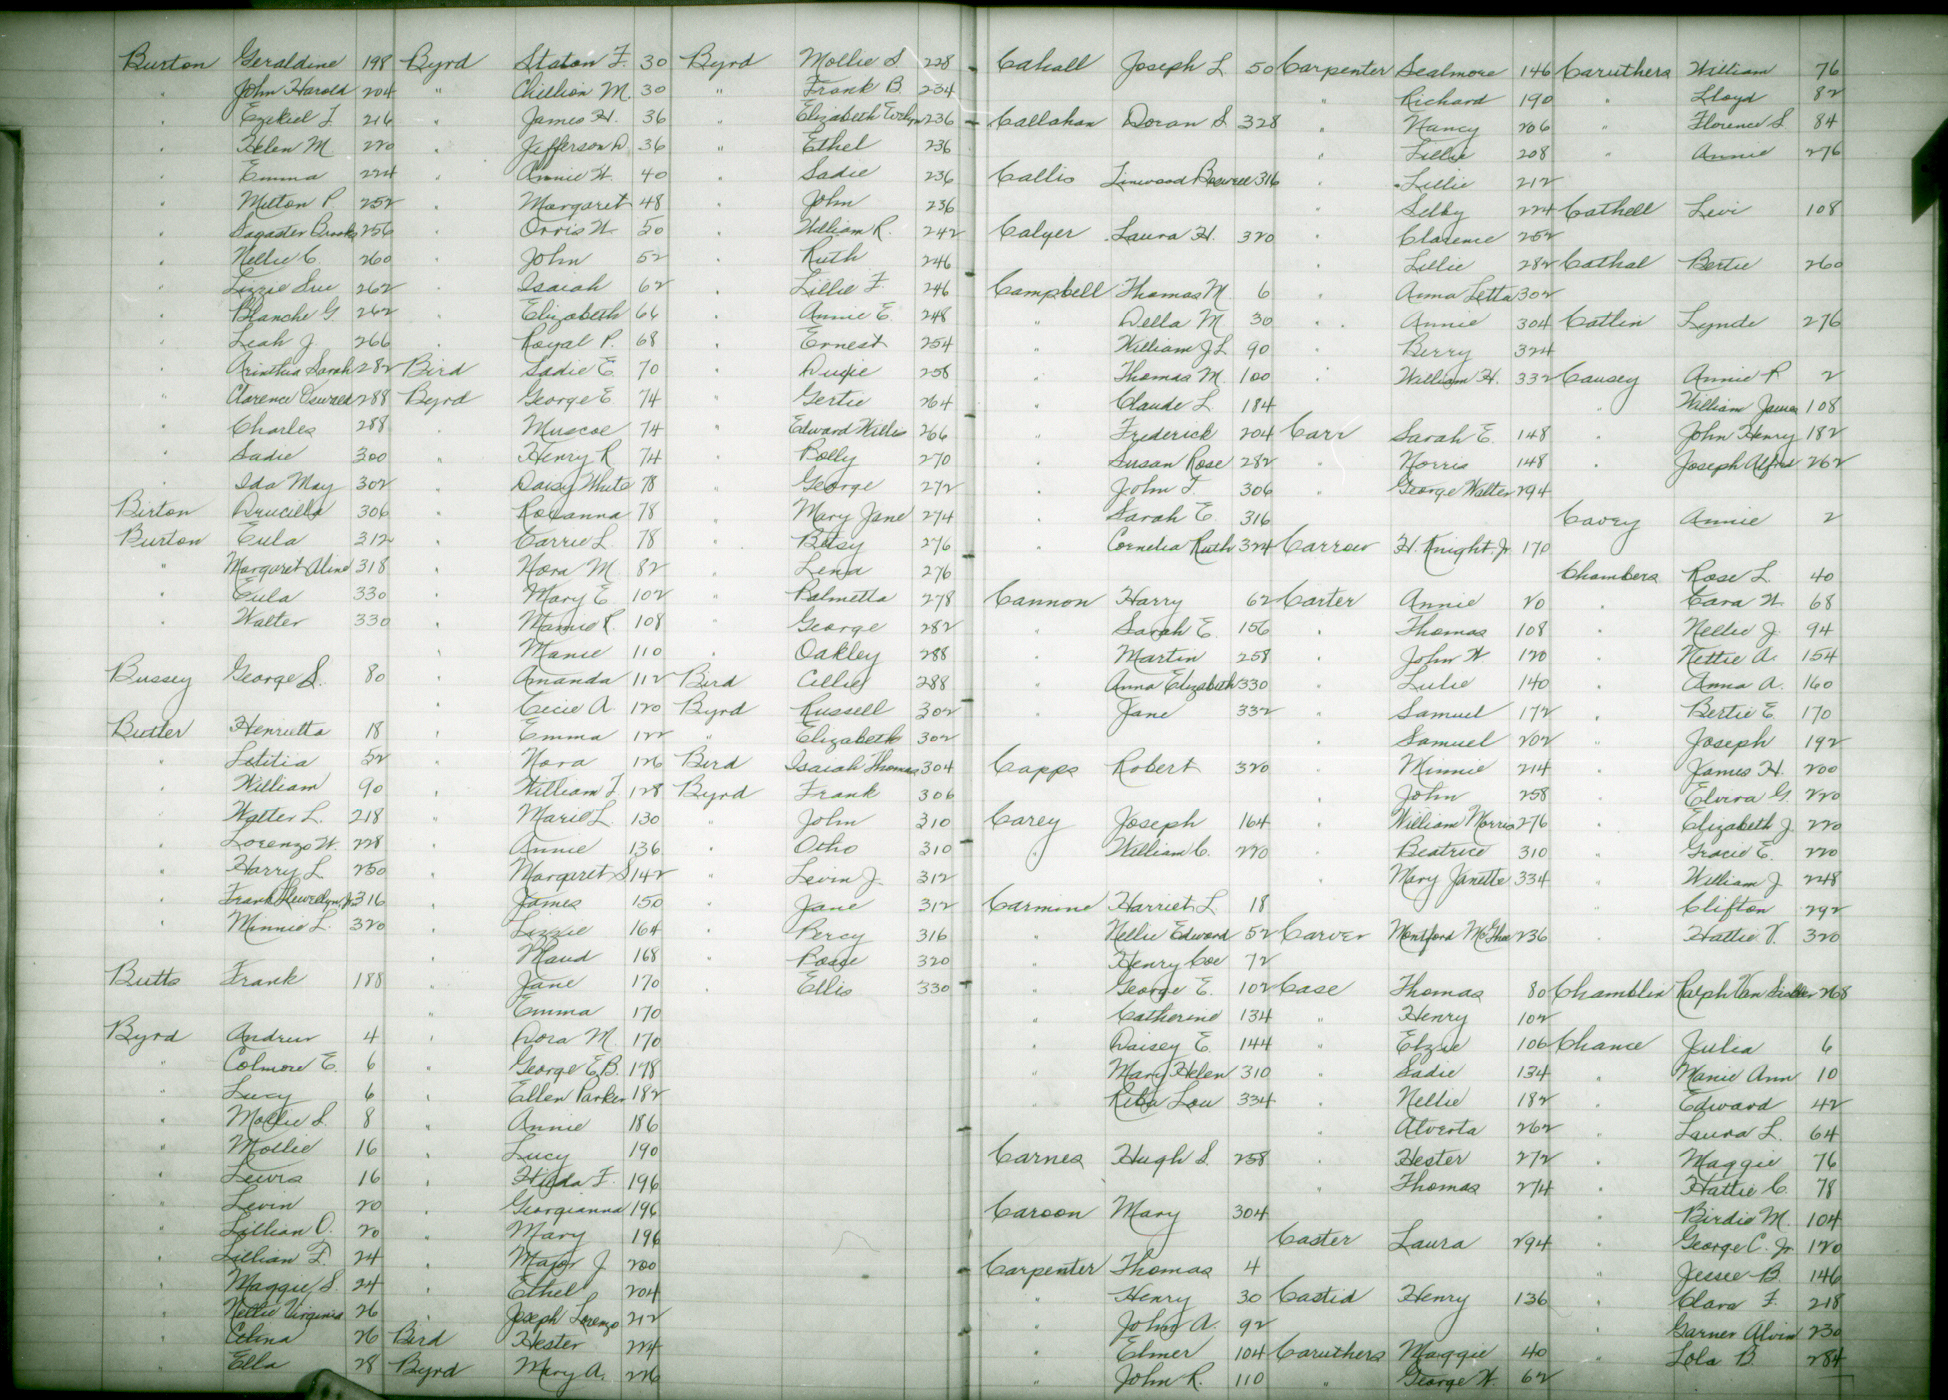 Burton Geraldine 198
" John Harold 204
" Ezekiel T 216
" Helen M 220
" Emma 224
" Milton P. 252
" Sagaster Brooks 256
" Nellie C. 260
" Lizzie Sue 262
" Blanche G. 262
" Leah J. 266
" Arinthia Sarah 282
" Clarence Oswald 288
" Charles 288
" Sadie 300
" Ida May 302
Birton Drucilla 306
Burton Eula 312
" Margaret Aline 318
" Eula 330
" Walter 330
Bussey George S. 80
Butler Henrietta 18
" Letitia 52
" William 90
" Walter L. 218
" Lorenzo W. 228
" Harry L 250
" Frank Llewellyn, Jr. 316
" Minnie L. 320
Butts Frank 188
Byrd Andrew 4
" Colmore E. 6
" Lucy 6
" Mollie S. 8
" Mollie 16
" Lewis 16
" Levin 20
" Lillian O. 20
" Lillian F. 24
" Maggie S. 24
" Nellie Virginia 26
" Celina 26
" Ella 28
Byrd Staton F. 30
" Chillion M. 30
" James H. 36
" Jefferson D. 36
" Annie W. 40
" Margaret 48
" Orris W. 50
" John 52
" Isaiah 62
" Elizabeth 66
" Royal P. 68
Bird Sadie E 70
Byrd George E 74
" Muscoe 74
" Henry R 74
" Daisy White 78
" Rosanna 78
" Carrie L. 78
" Nora M 82
" Mary E 102
" Mamie R. 108
" Manie 110
" Amanda 112
" Cecie A 120
" Emma 122
" Nora 126
" William T. 128
" Marie L. 130
" Annie 136
" Margaret S 142
" James 150
" Lizzie 164
" Maud 168
" Jane 170
" Emma 170
" Dora M. 170
" George E.B. 178
" Ellen Parker 182
" Annie 186
" Lucy 190
" Hilda F. 196
" Georgianna 196
" Mary 196
" Major J. 200
" Ethel 204
" Joseph Lorenzo 212
Bird Hester 224
Byrd Mary A. 226
Byrd Mollie S 228
" Frank B. 234
" Elizabeth Evelyn 236
" Ethel 236
" Sadie 236
" John 236
" William R. 242
" Ruth 246
" Lillie F. 246
" Annie E. 248
" Ernest 254
" Duxie 258
" Gertie 264
" Edward Willis 266
" Polly 270
" George 272
" Mary Jane 274
" Betsy 276
" Lena 276
" Palmetta 278
" George 282
" Oakley 288
Bird Cillie 288
Byrd Russell 302
" Elizabeth 302
Bird Isaiah Thomas 304
Byrd Frank 306
" John 310
" Otho 310
" Levin J. 312
" Jane 312
" Percy 316
" 320
" Ellis 330
Cahall Joseph L 50
Callahan Doran S. 328
Callis Linwood Boswell 316
Calyer Laura H. 320
Campbell Thomas M. 6
" Della M. 30
" William J L 90
" Thomas M. 100
" Claude L. 184
" Frederick 204
" Susan Rose 282
" John T. 306
" Sarah E. 316
" Cornelia Ruth 324
Cannon Harry 62
" Sarah E. 156
" Martin 258
" Anna Elizabeth 330
" Jane 332
Capps Robert 320
Carey Joseph 164
" William C. 220
Carmine Harriet L 18
" Nellie Edward 52
" Henry Coe 72
" George E. 102
" Catherine 134
" Daisey E. 144
" Mary Helen 310
" Reba Lou 334
Carnes Hugh S. 258
Caroon Mary 304
Carpenter Thomas 4
" Henry 30
" John A. 92
" Elmer 104
" John R. 110
Carpenter Sealmore 146
" Richard 190
" Nancy 206
" Lillie 208
" Lillie 212
" Selby 224
" Clarence 252
" Lillie 282
" Anna Letta 302
" Annie 304
" Berry 324
" William H. 332
Carr Sarah E. 148
" Norris 148
" George Walter 294
Carrow H. Knight, Jr. 170
Carter Annie 20
" Thomas 108
" John W 120
" Lulie 140
" Samuel 172
" Samuel 202
" Minnie 214
" John 258
" William Morris 276
" Beatrice 310
" Mary Janette 334
Carver Montford McGhee 236
Case Thomas 80
" Henry 102
" Elzie 106
" Sadie 134
" Nellie 182
" Alverta 262
" Hester 272
" Thomas 274
Caster Laura 294
Castid Henry 136
Caruthers Maggie 40
" George W. 62
Caruthers William 76
" Lloyd 82
" Florence S 84
" Annie 276
Cathell Levi 108
Cathal Bertie 260
Catlin Lynde 276
Causey Annie P 2
" William James 108
" John Henry 182
" Joseph Alfred 262
Cavey Annie 2
Chambers Rose L. 40
" Cara W. 68
" Nellie J. 94
" Nettie A. 154
" Anna A. 160
" Bertie E. 170
" Joseph 192
" James H. 200
" Elvira G. 220
" Elizabeth J. 220
" Gracie E. 220
" William J. 248
" Clifton 292
" Hattie V. 320
Chamblin Ralph Van 268
Chance Julia 6
" Manie Ann 10
" Edward 42
" Laura L. 64
" Maggie 76
" Hattie C. 78
" Birdie M. 104
" George C. Jr. 120
" Jessie B. 146
" Clara F. 218
" Garner Alvin 230
" Lola B. 284